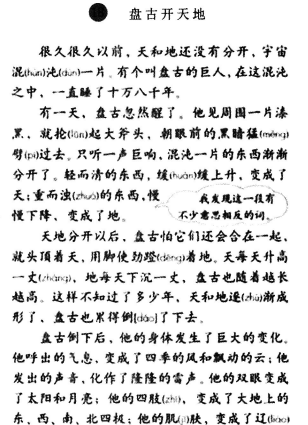 盘古开天地
很久很久以前，天和地还没有分开，宇宙
混(hùn)沌(dùn)一片。有个叫盘古的巨人，在这混沌
之中，一直睡了十万八千年。
有一天，盘古忽然醒了。他见周围一片漆
黑，就抡(lūn)起大斧头，朝眼前的黑暗猛(měng)
劈(pī)过去。只听一声巨响，混沌一片的东西渐渐
分开了。轻而清的东西，缓(huǎn)缓上升，变成了
天；重而浊(zhuó)的东西，慢
慢下降，变成了地。
我发现这一段有
不少意思相反的词。
天地分开以后，盘古怕它们还会合在一起，
就头顶着天，用脚使劲蹬(dēng)着地。天每天升高
一丈(zhàng)，地每天下沉一丈，盘古也随着越长
越高。这样不知过了多少年，天和地逐(zhú)渐成
形了，盘古也累得倒[dǎo]了下去。
盘古倒下后，他的身体发生了巨大的变化。
他呼出的气息，变成了四季的风和飘动的云；他
发出的声音，化作了隆隆的雷声。他的双眼变成
了太阳和月亮；他的四肢(zhī)，变成了大地上的
东、西、南、北四极；他的肌(jī)肤，变成了辽(liáo)